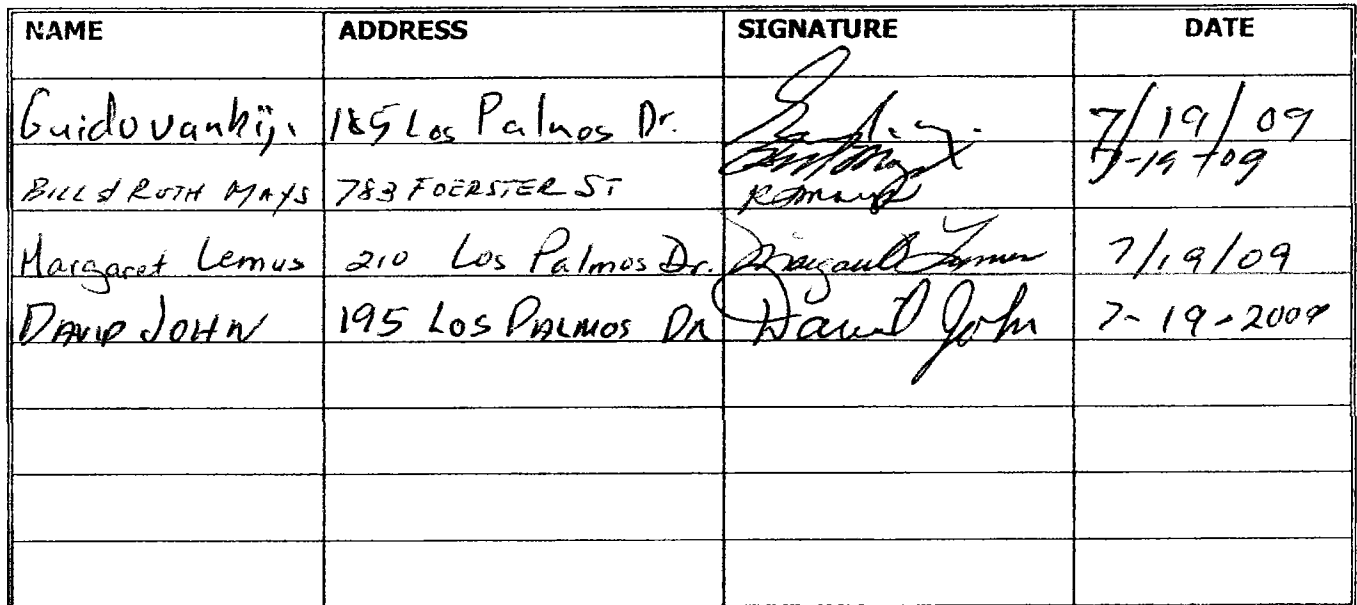 NAME ADDRESS SIGNATURE DATE
Guido vankij. 185 Los Palmos Dr. 7/19/09
BILL & RUTH MAYS 783 FOERSTER ST 7-19-09
Margaret Lemus 210 Los Palmos Dr. Margaret Lemus 7/19/09
DAVID JOHN 195 LOS PALMOS DR David John 7-19-2009